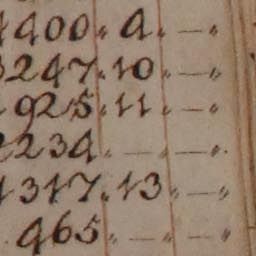 4400 . 4 . — „
3247 . 10 . — „
1925 . 11 . — „
2234 . — . — „
1317 . 13 . — „
465 „ — „ — „